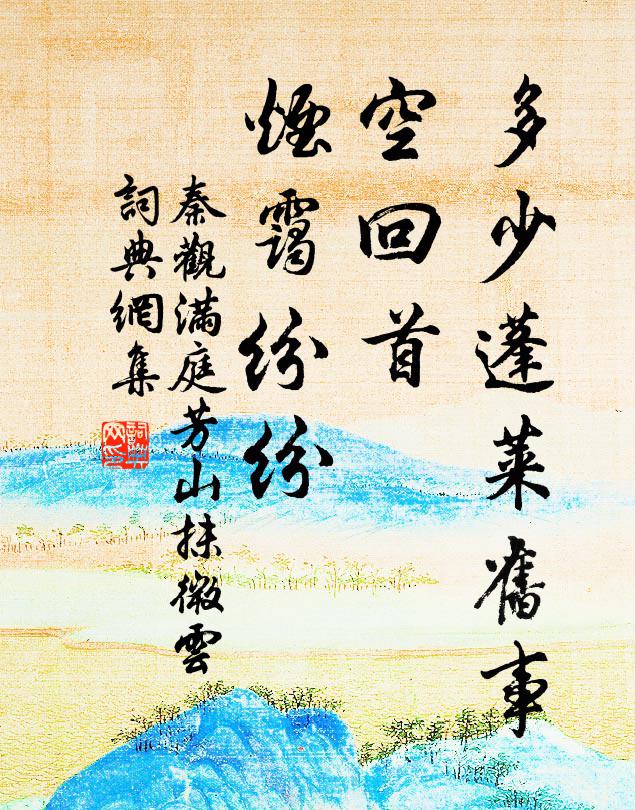 多少蓬萊舊事
空回首
煙靄紛紛
秦觀滿庭芳山抹微雲
詞典網集